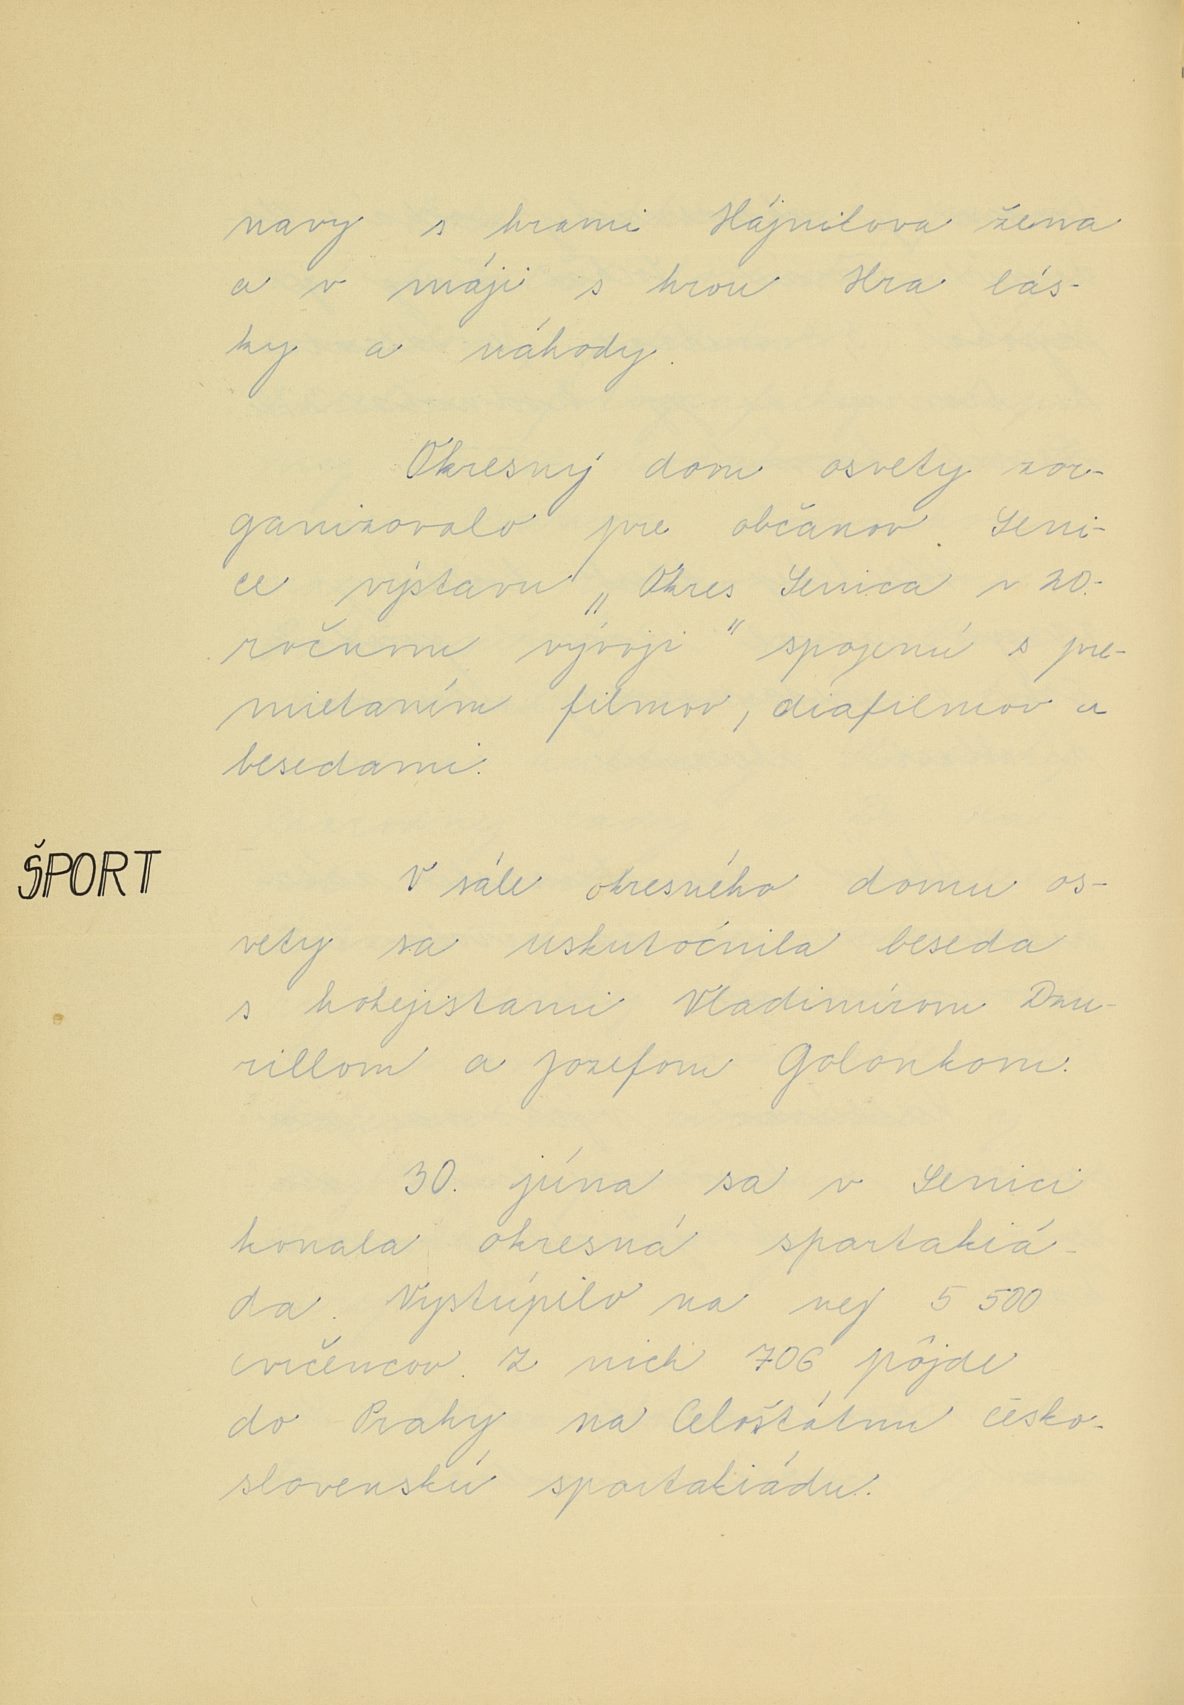 navy s hrami Hájnikova žena
a v máji s hrou Hra lás-
ky a náhody.
Okresný dom osvety zor-
ganizovalo pre občanov Seni-
ce výstavu „Okres Senica v 20.
ročnom vývoji" spojenú s pre-
mietaním filmov, diafilmov a
besedami.
ŠPORT
V sále okresného domu os-
vety sa uskutočnila beseda
s hokejistami Vladimírom Dzu-
rillom a Jozefom Golonkom.
30. júna sa v Senici
konala okresná spartakiá-
da. Vystúpilo na nej 5 500
cvičencov. Z nich 706 pôjde
do Prahy na Celoštátnu česko-
slovenskú spartakiádu.